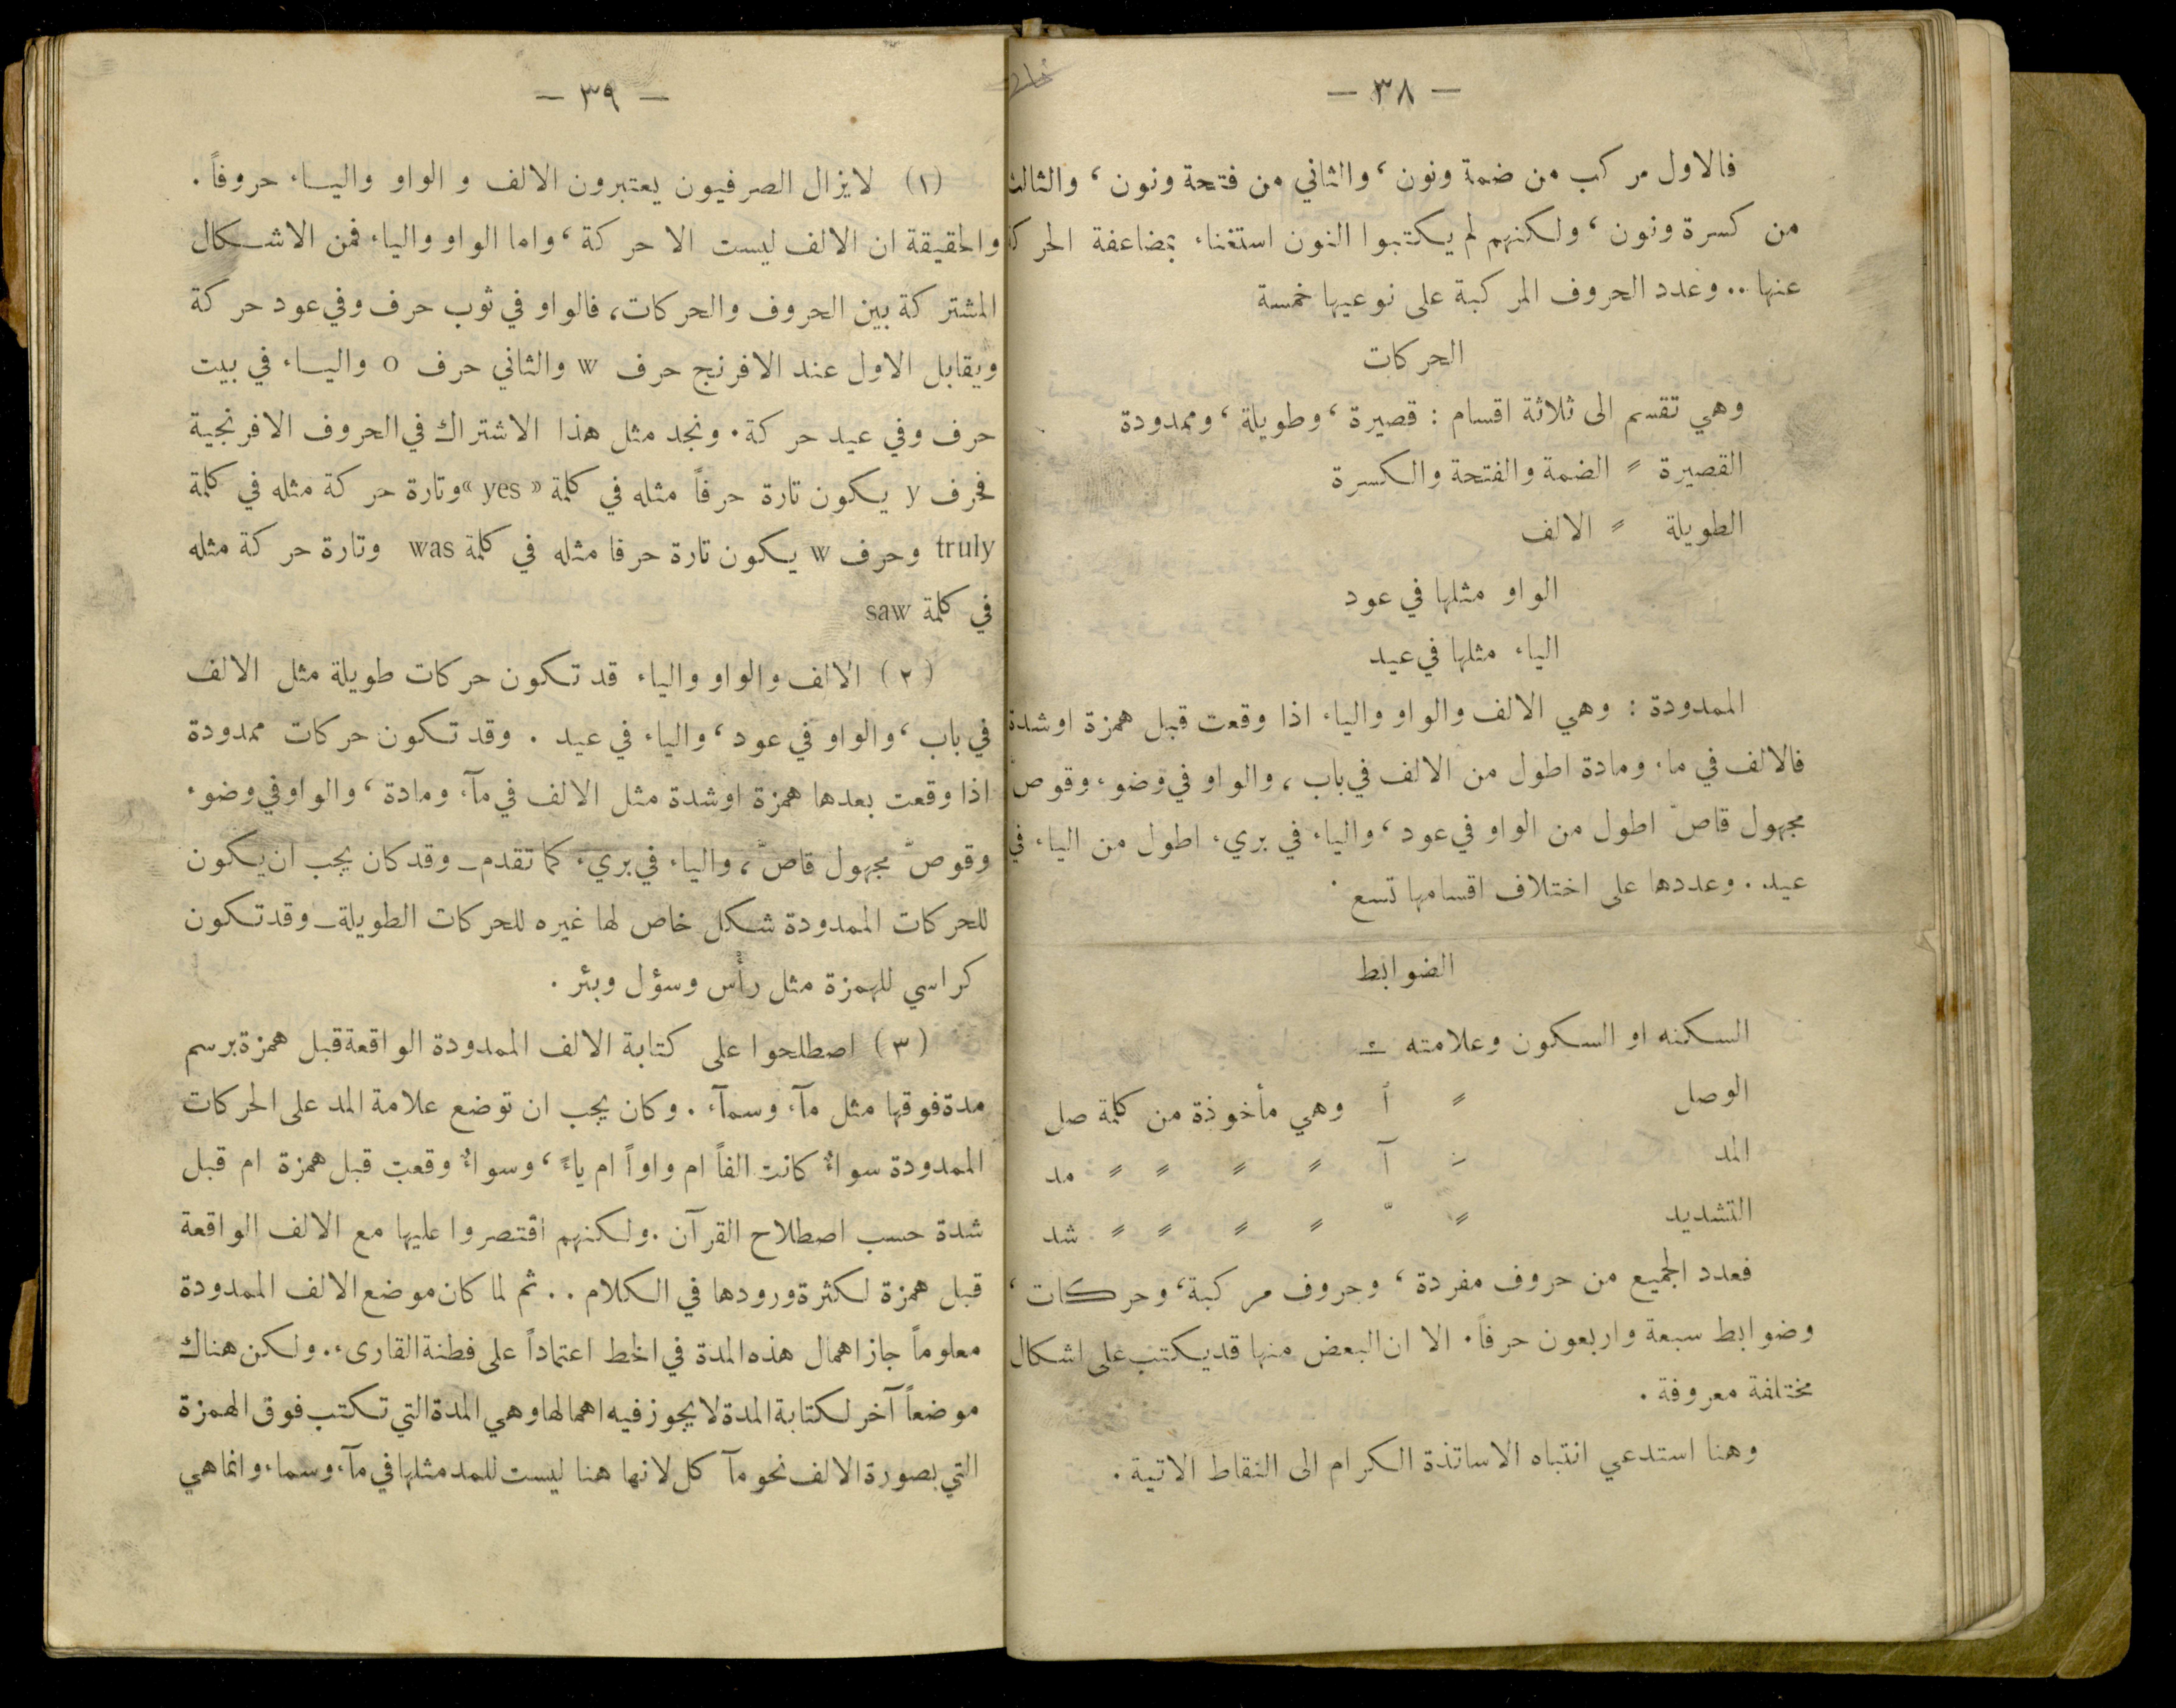 — ٣٨ —
فالاول مركب من ضمة ونون ، والثاني من فتحة ونون ، والثالث
من كسرة ونون ، ولكنهم لم يكتبوا النون استغناء بمضاعفة الحركة
عنها .. وعدد الحروف المركبة على نوعيها خمسة
الحركات
وهي تقسم الى ثلاثة اقسام : قصيرة ، وطويلة ، وممدودة
القصيرة ״ الضمة والفتحة والكسرة
الطويلة ״ الالف
الواو مثلها في عود
الياء مثلها في عيد
الممدودة : وهي الالف والواو والياء اذا وقعت قبل همزة او شدة
فالالف في ماء ومادة اطول من الالف في باب ، والواو في وضوء وقوصّ
مجهول قاصّ اطول من الواو في عود ، والياء في بريء اطول من الياء في
عيد . وعددها على اختلاف اقسامها تسع .
الضوابط
السكنه او السكون وعلامته ـْ
الوصل ״ ٱ وهي مأخوذة من كلمة صل
المد ״ آ ״ ״ ״ ״ مد
التشديد ״ ّ ״ ״ ״ ״ شد
فعدد الجميع من حروف مفردة ، وحروف مركبة ، وحركات ،
وضوابط سبعة واربعون حرفاً . الا ان البعض منها قد يكتب على اشكال
مختلفة معروفة .
وهنا استدعي انتباه الاساتذة الكرام الى النقاط الاتية .
— ٣٩ —
(١) لايزال الصرفيون يعتبرون الالف و الواو واليـاء حروفاً .
والحقيقة ان الالف ليست الا حركة ، واما الواو والياء فمن الاشكال
المشتركة بين الحروف والحركات، فالواو في ثوب حرف وفي عود حركة
ويقابل الاول عند الافرنج حرف w والثاني حرف o واليـاء في بيت
حرف وفي عيد حركة . ونجد مثل هذا الاشتراك في الحروف الافرنجية
فحرف y يكون تارة حرفاً مثله في كلمة « yes » وتارة حركة مثله في كلمة
truly وحرف w يكون تارة حرفا مثله في كلمة was وتارة حركة مثله
في كلمة saw
(٢) الالف والواو والياء قد تكون حركات طويلة مثل الالف
في باب ، والواو في عود ، والياء في عيد . وقد تكون حركات ممدودة
اذا وقعت بعدها همزة او شدة مثل الالف في مآء ومادة ، والواو في وضوء
وقوصّ مجهول قاصّ ، والياء في بريء كما تقدم ـ وقد كان يجب ان يكون
للحركات الممدودة شكل خاص لها غيره للحركات الطويلة ـ وقد تكون
كراسي للهمزة مثل رأس وسؤل وبئر .
(٣) اصطلحوا على كتابة الالف الممدودة الواقعة قبل همزة برسم
مدة فوقها مثل مآء وسمآء . وكان يجب ان توضع علامة المد على الحركات
الممدودة سواءٌ كانت الفاً ام واواً ام ياءً ، وسواءٌ وقعت قبل همزة ام قبل
شدة حسب اصطلاح القرآن . ولكنهم اقتصروا عليها مع الالف الواقعة
قبل همزة لكثرة ورودها في الكلام .. ثم لما كان موضع الالف الممدودة
معلوماً جاز اهمال هذه المدة في الخط اعتماداً على فطنة القارىء . ولكن هناك
موضعاً آخر لكتابة المدة لا يجوز فيه اهمالها وهي المدة التي تكتب فوق الهمزة
التي بصورة الالف نحو مآكل لانها هنا ليست للمد مثلها في مآء وسماء وانما هي